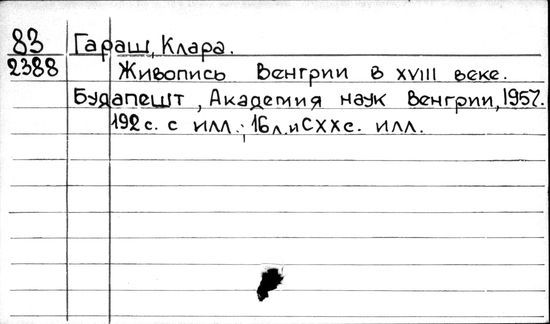 83 Гараш, Клара.
2388 Живопись Венгрии в XVIII веке.
Будапешт, Академия наук Венгрии, 1957.
192 с. с илл.; 16 л. и CXX с. илл.